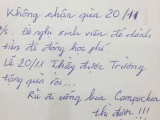 Không nhận quà 20/11
Đề nghị sinh viên để dành
tiền để đóng học phí
Lễ 20/11 Thầy được Trường
tặng quà rồi...
Rủ đi uống bia Campuchia
thì được !!!